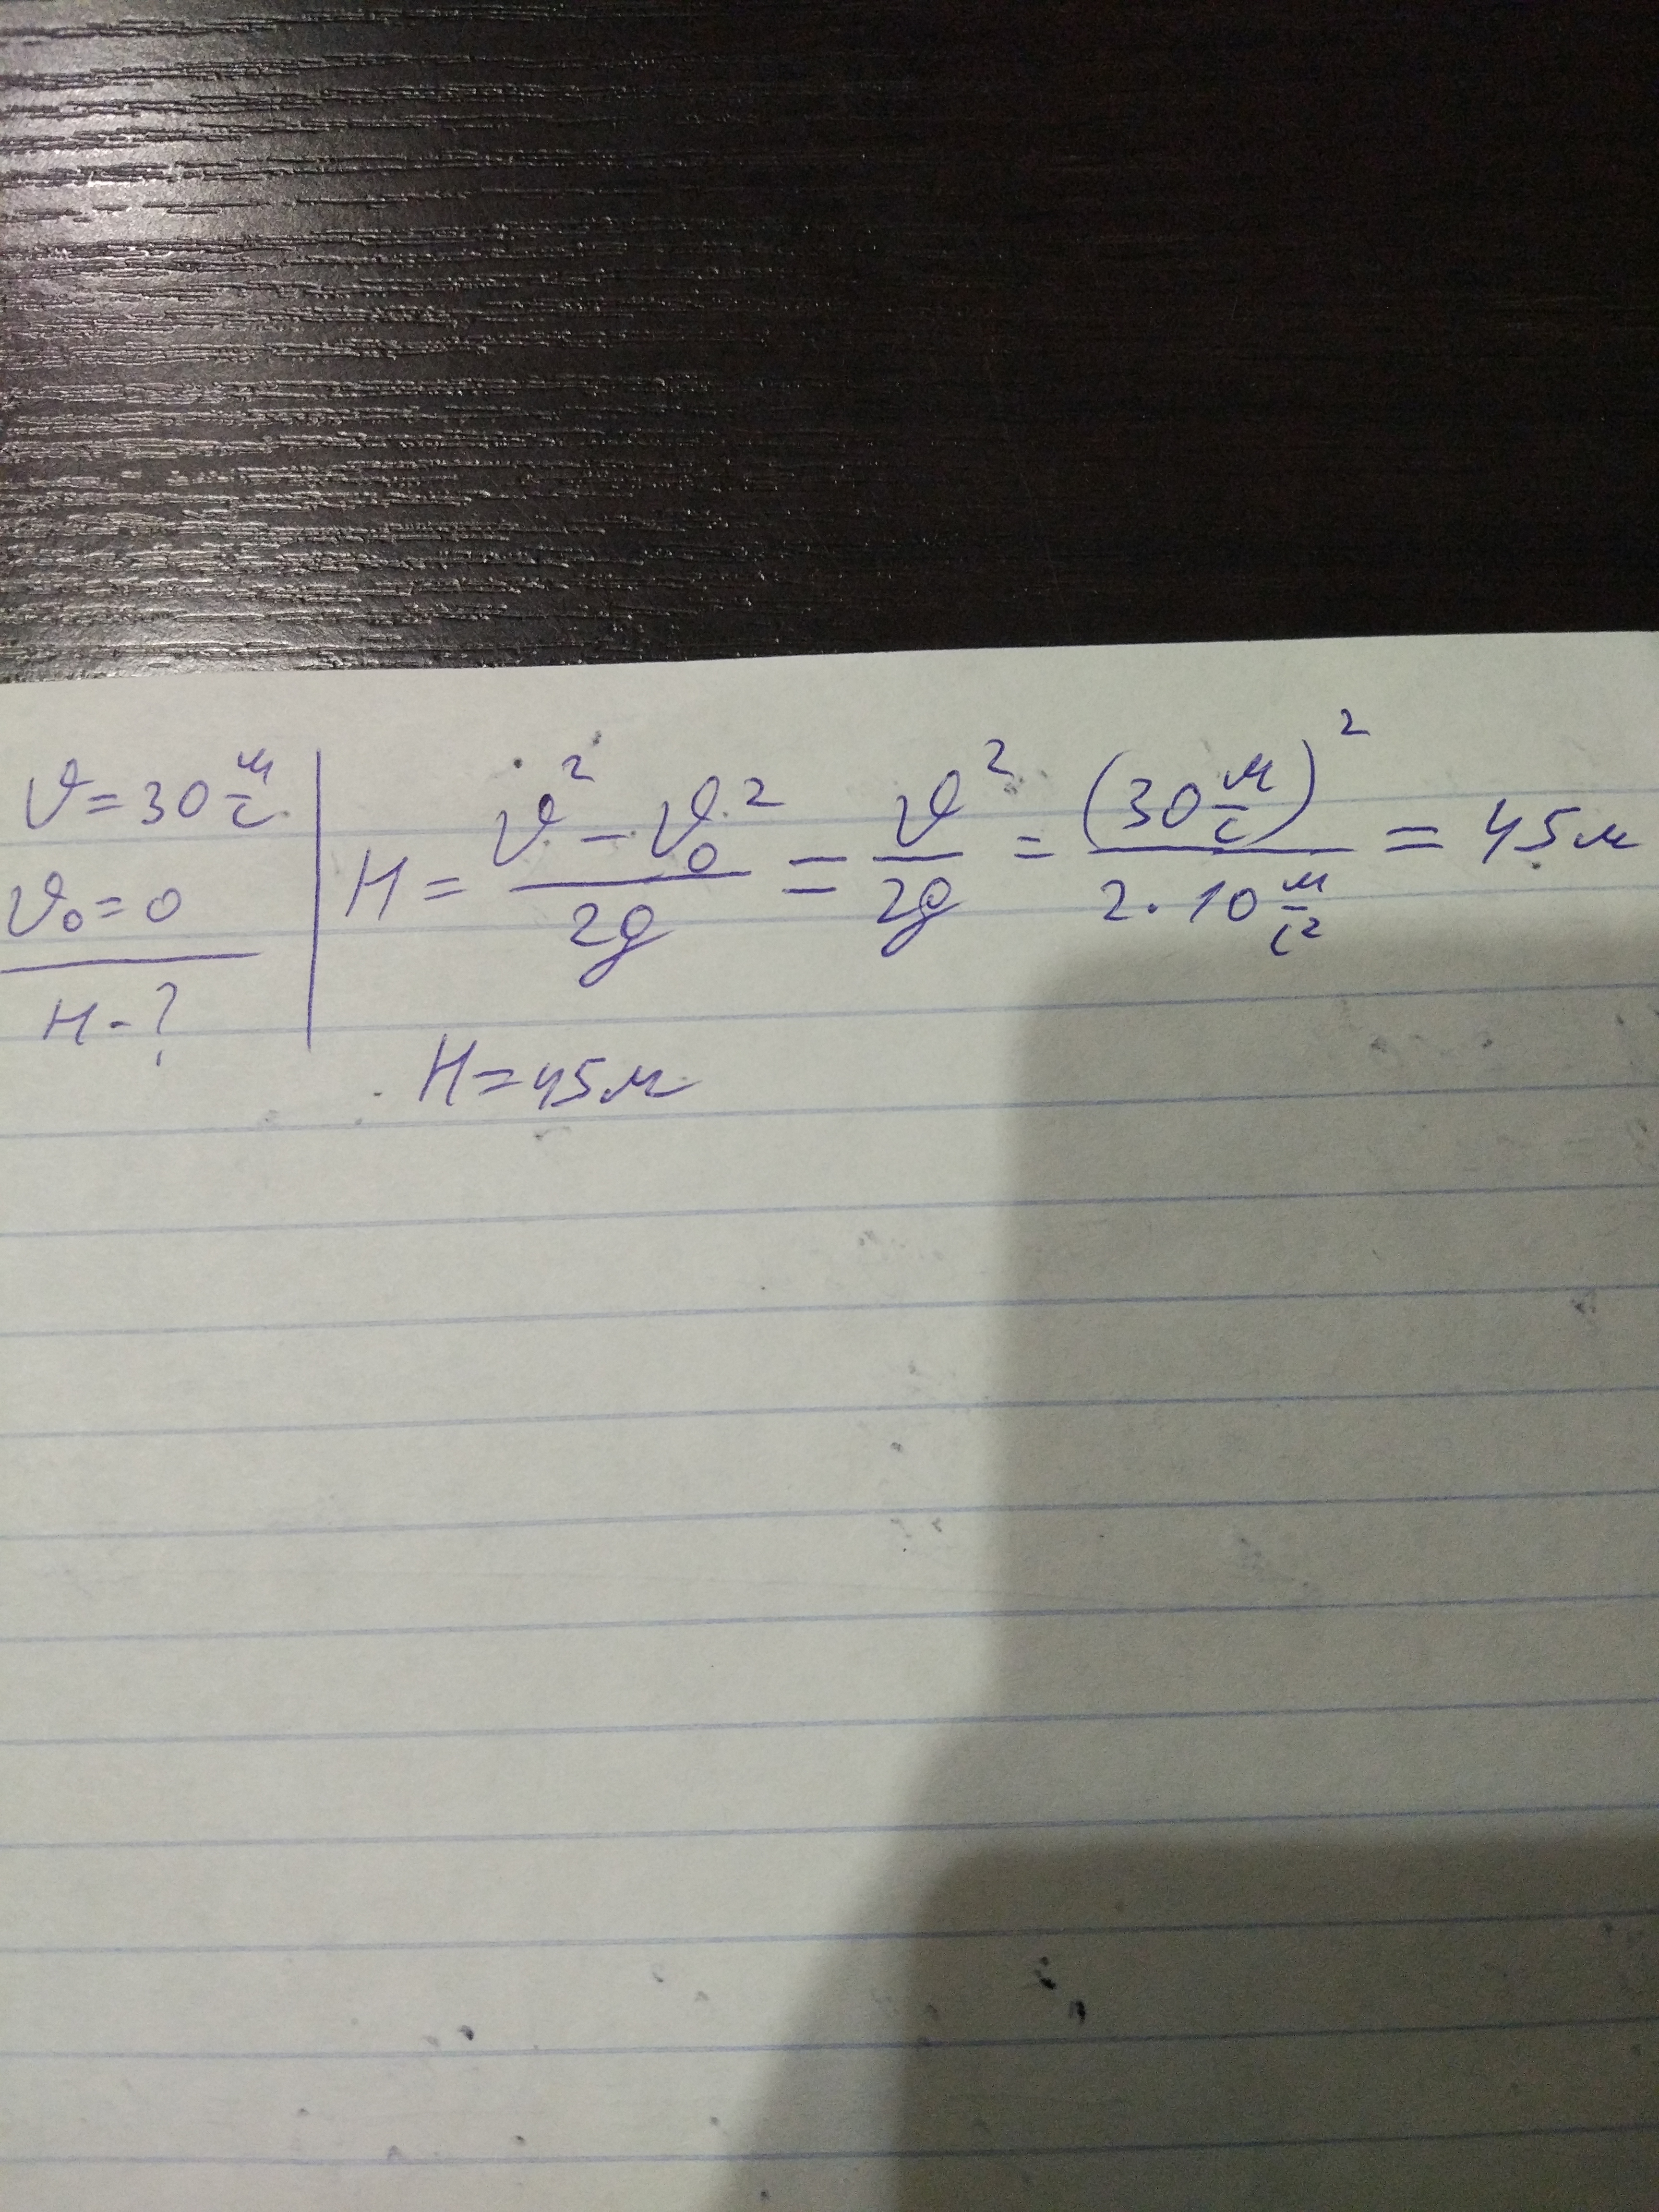 υ = 30 м/с
υ₀ = 0
H - ?
H = (υ² - υ₀²)/2g = υ²/2g = (30 м/с)²/(2 · 10 м/с²) = 45 м
H = 45 м